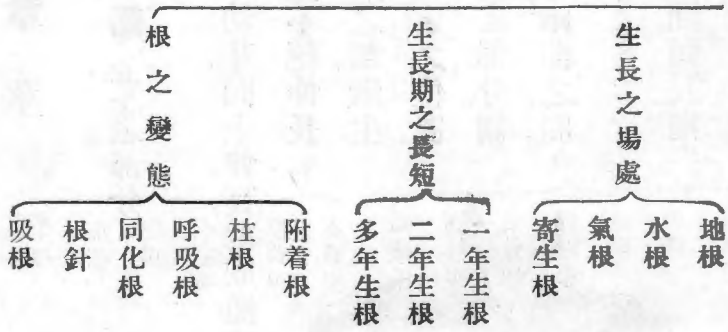 生長之場處
地根
水根
氣根
寄生根
生長期之長短
一年生根
二年生根
多年生根
根之變態
附着根
柱根
呼吸根
同化根
根針
吸根